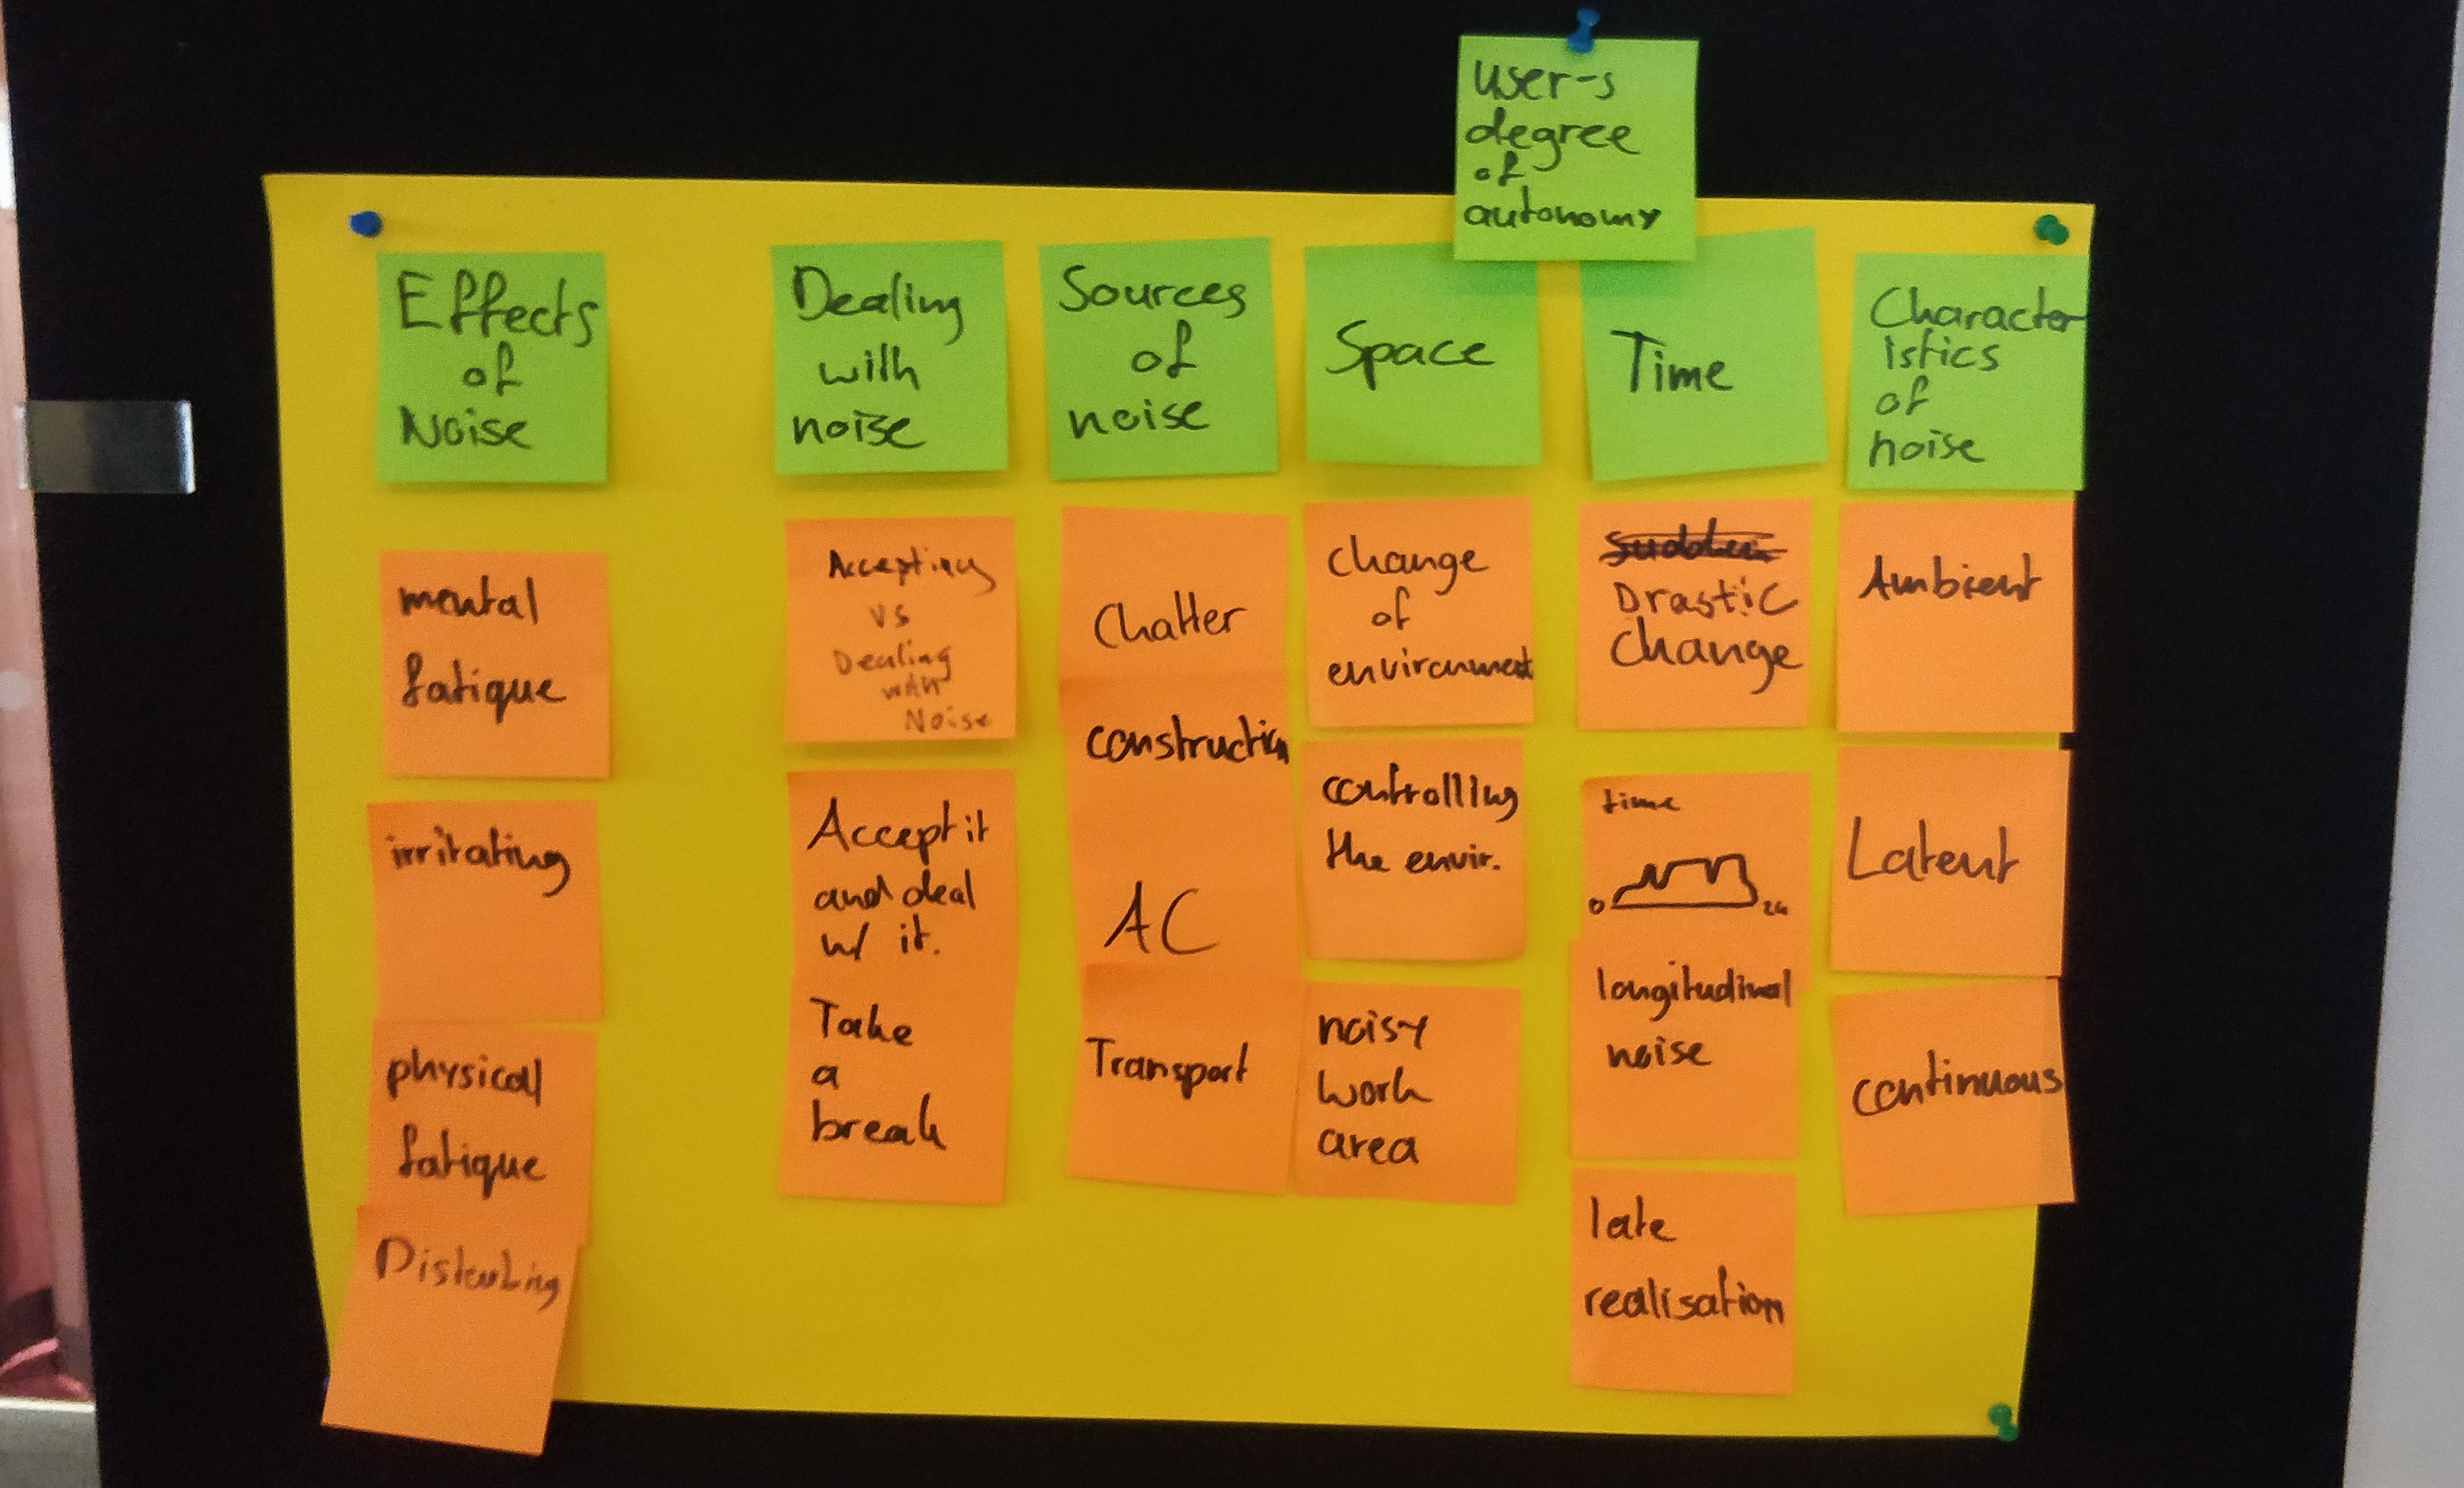 user-s
degree
of
autonomy
Effects
of
Noise
mental
fatique
irritating
physical
fatique
Disturbing
Dealing
with
noise
Accepting
vs
Dealing
with
Noise
Accept it
and deal
w/ it.
Take
a
break
Sources
of
noise
Chatter
construction
AC
Transport
Space
change
of
environment
controlling
the envir.
noisy
work
area
Time
sudden
Drastic
Change
time
0 24
longitudinal
noise
late
realisation
Character
istics
of
noise
Ambient
Latent
continuous